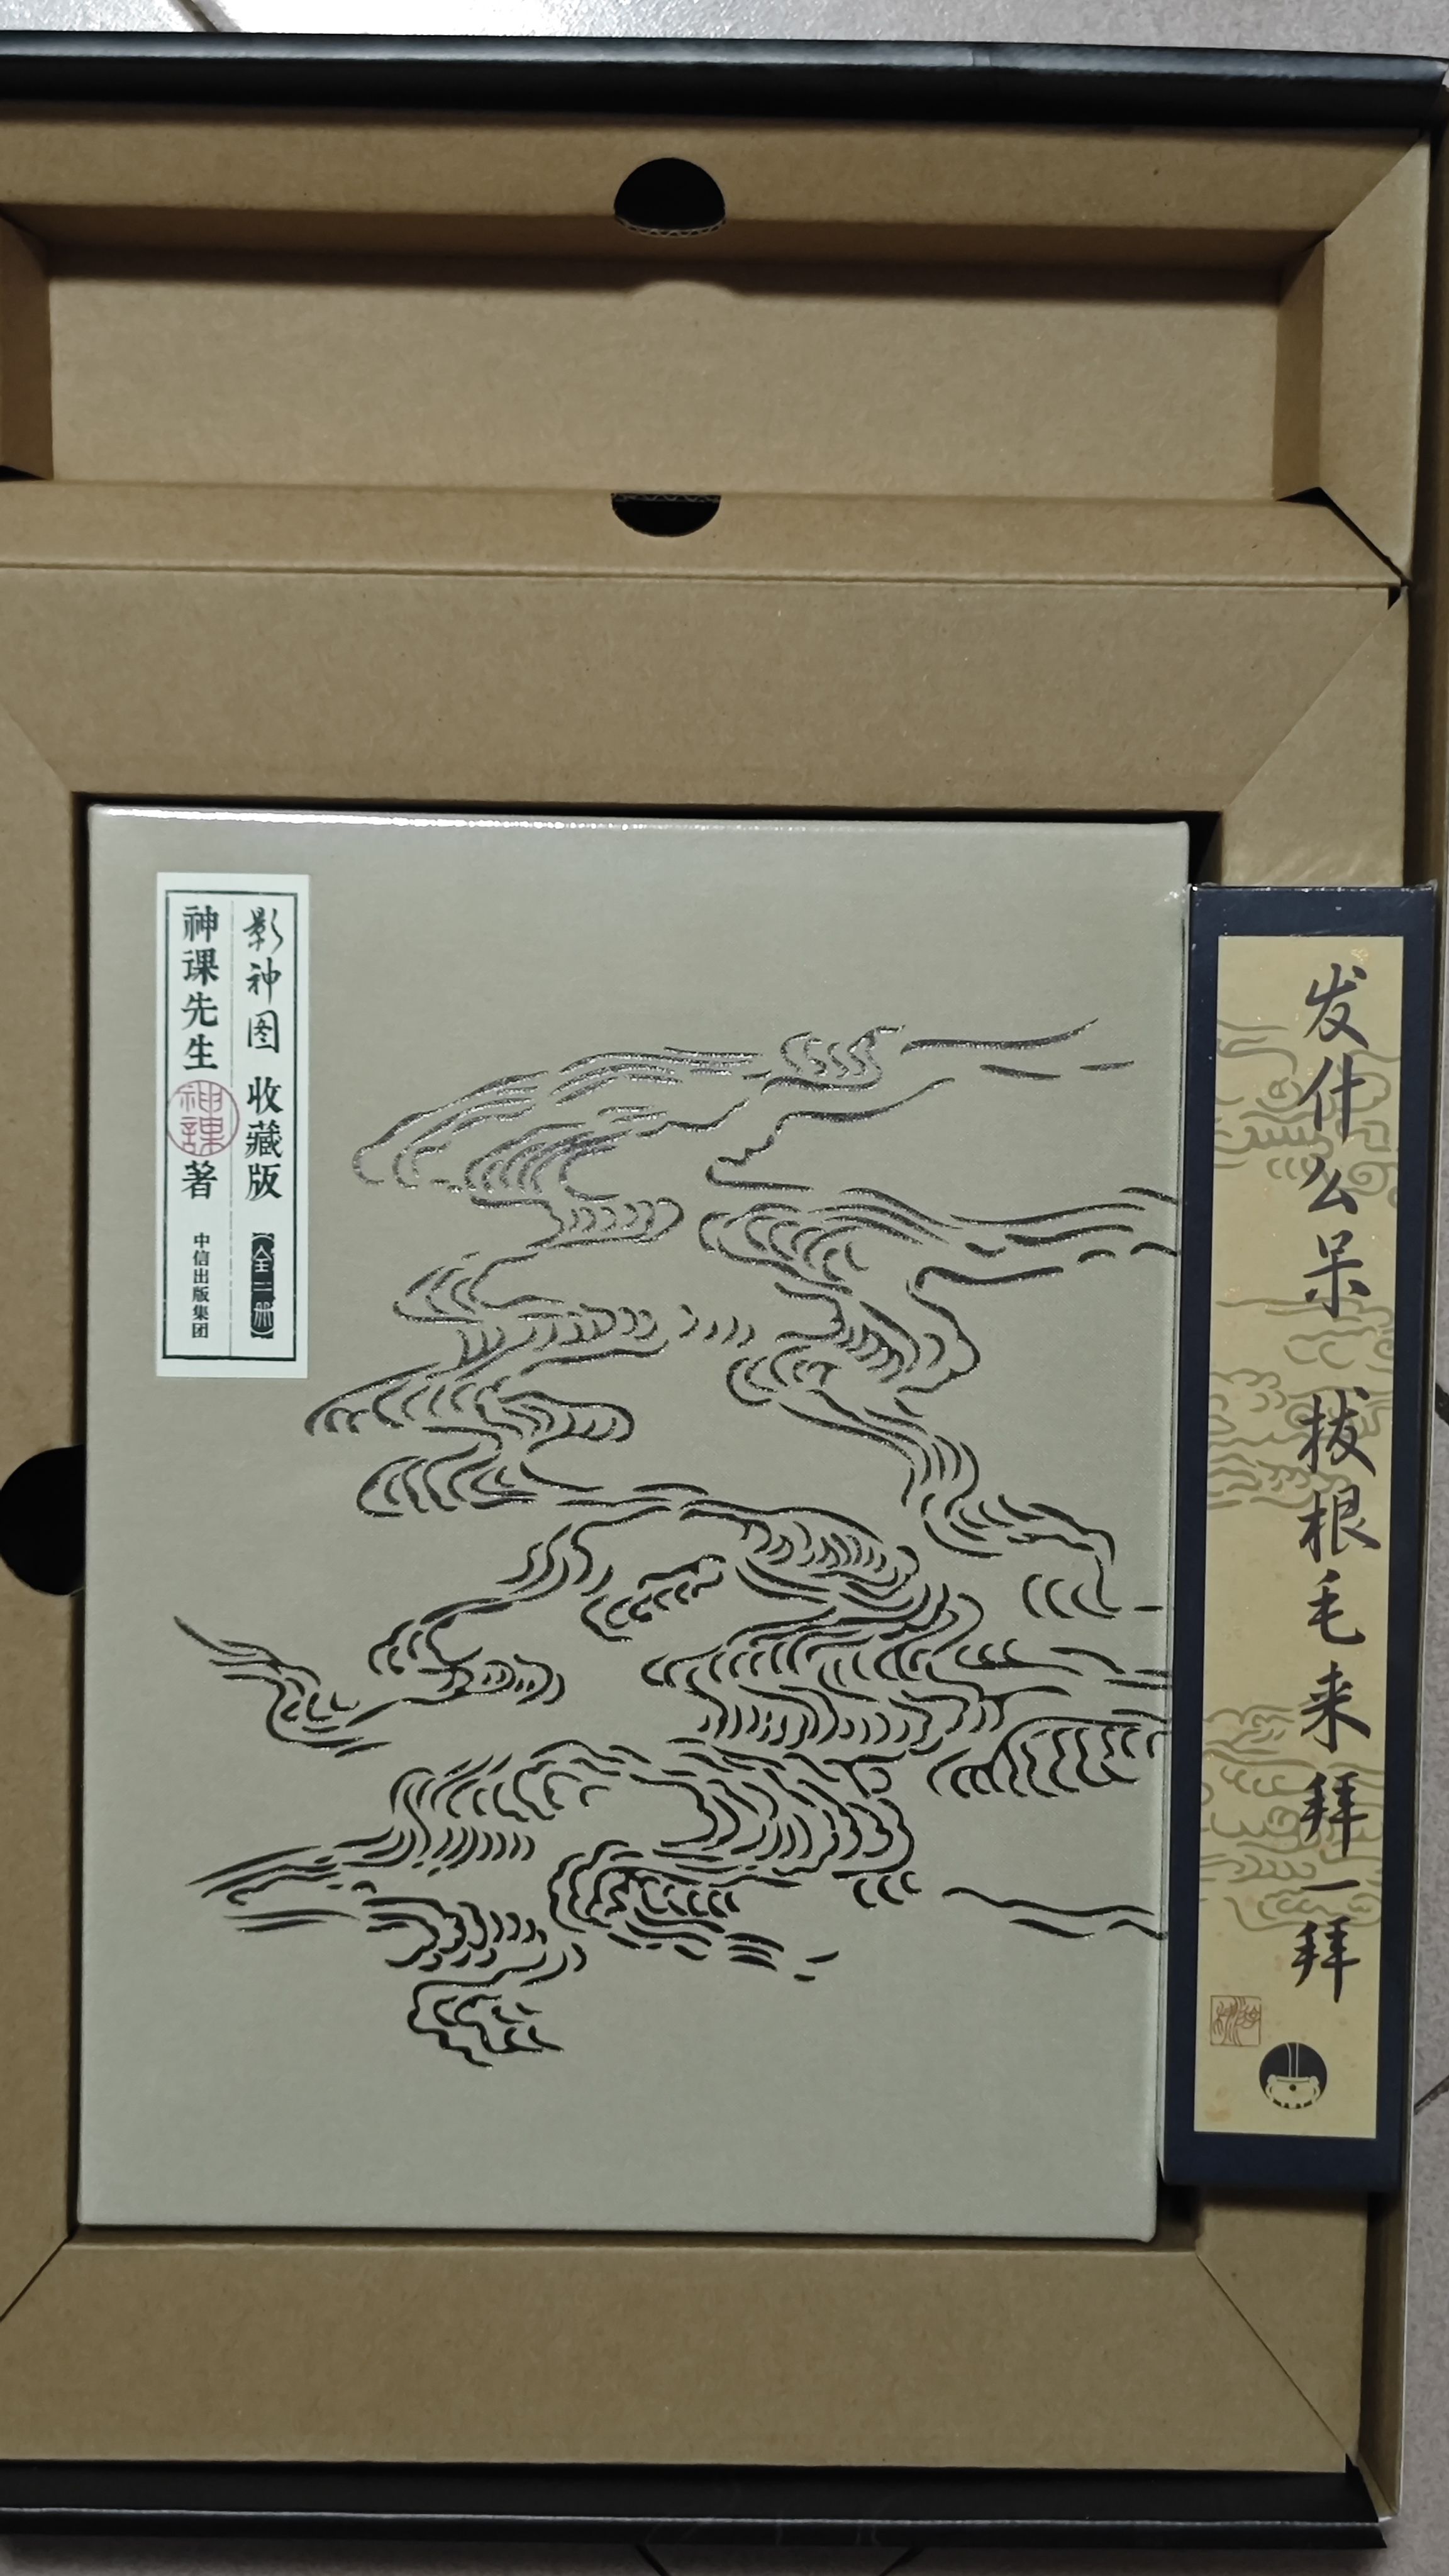 影神图 收藏版
【全二册】
神课先生 著
神課
中信出版集团
发什么呆 拔根毛来拜一拜